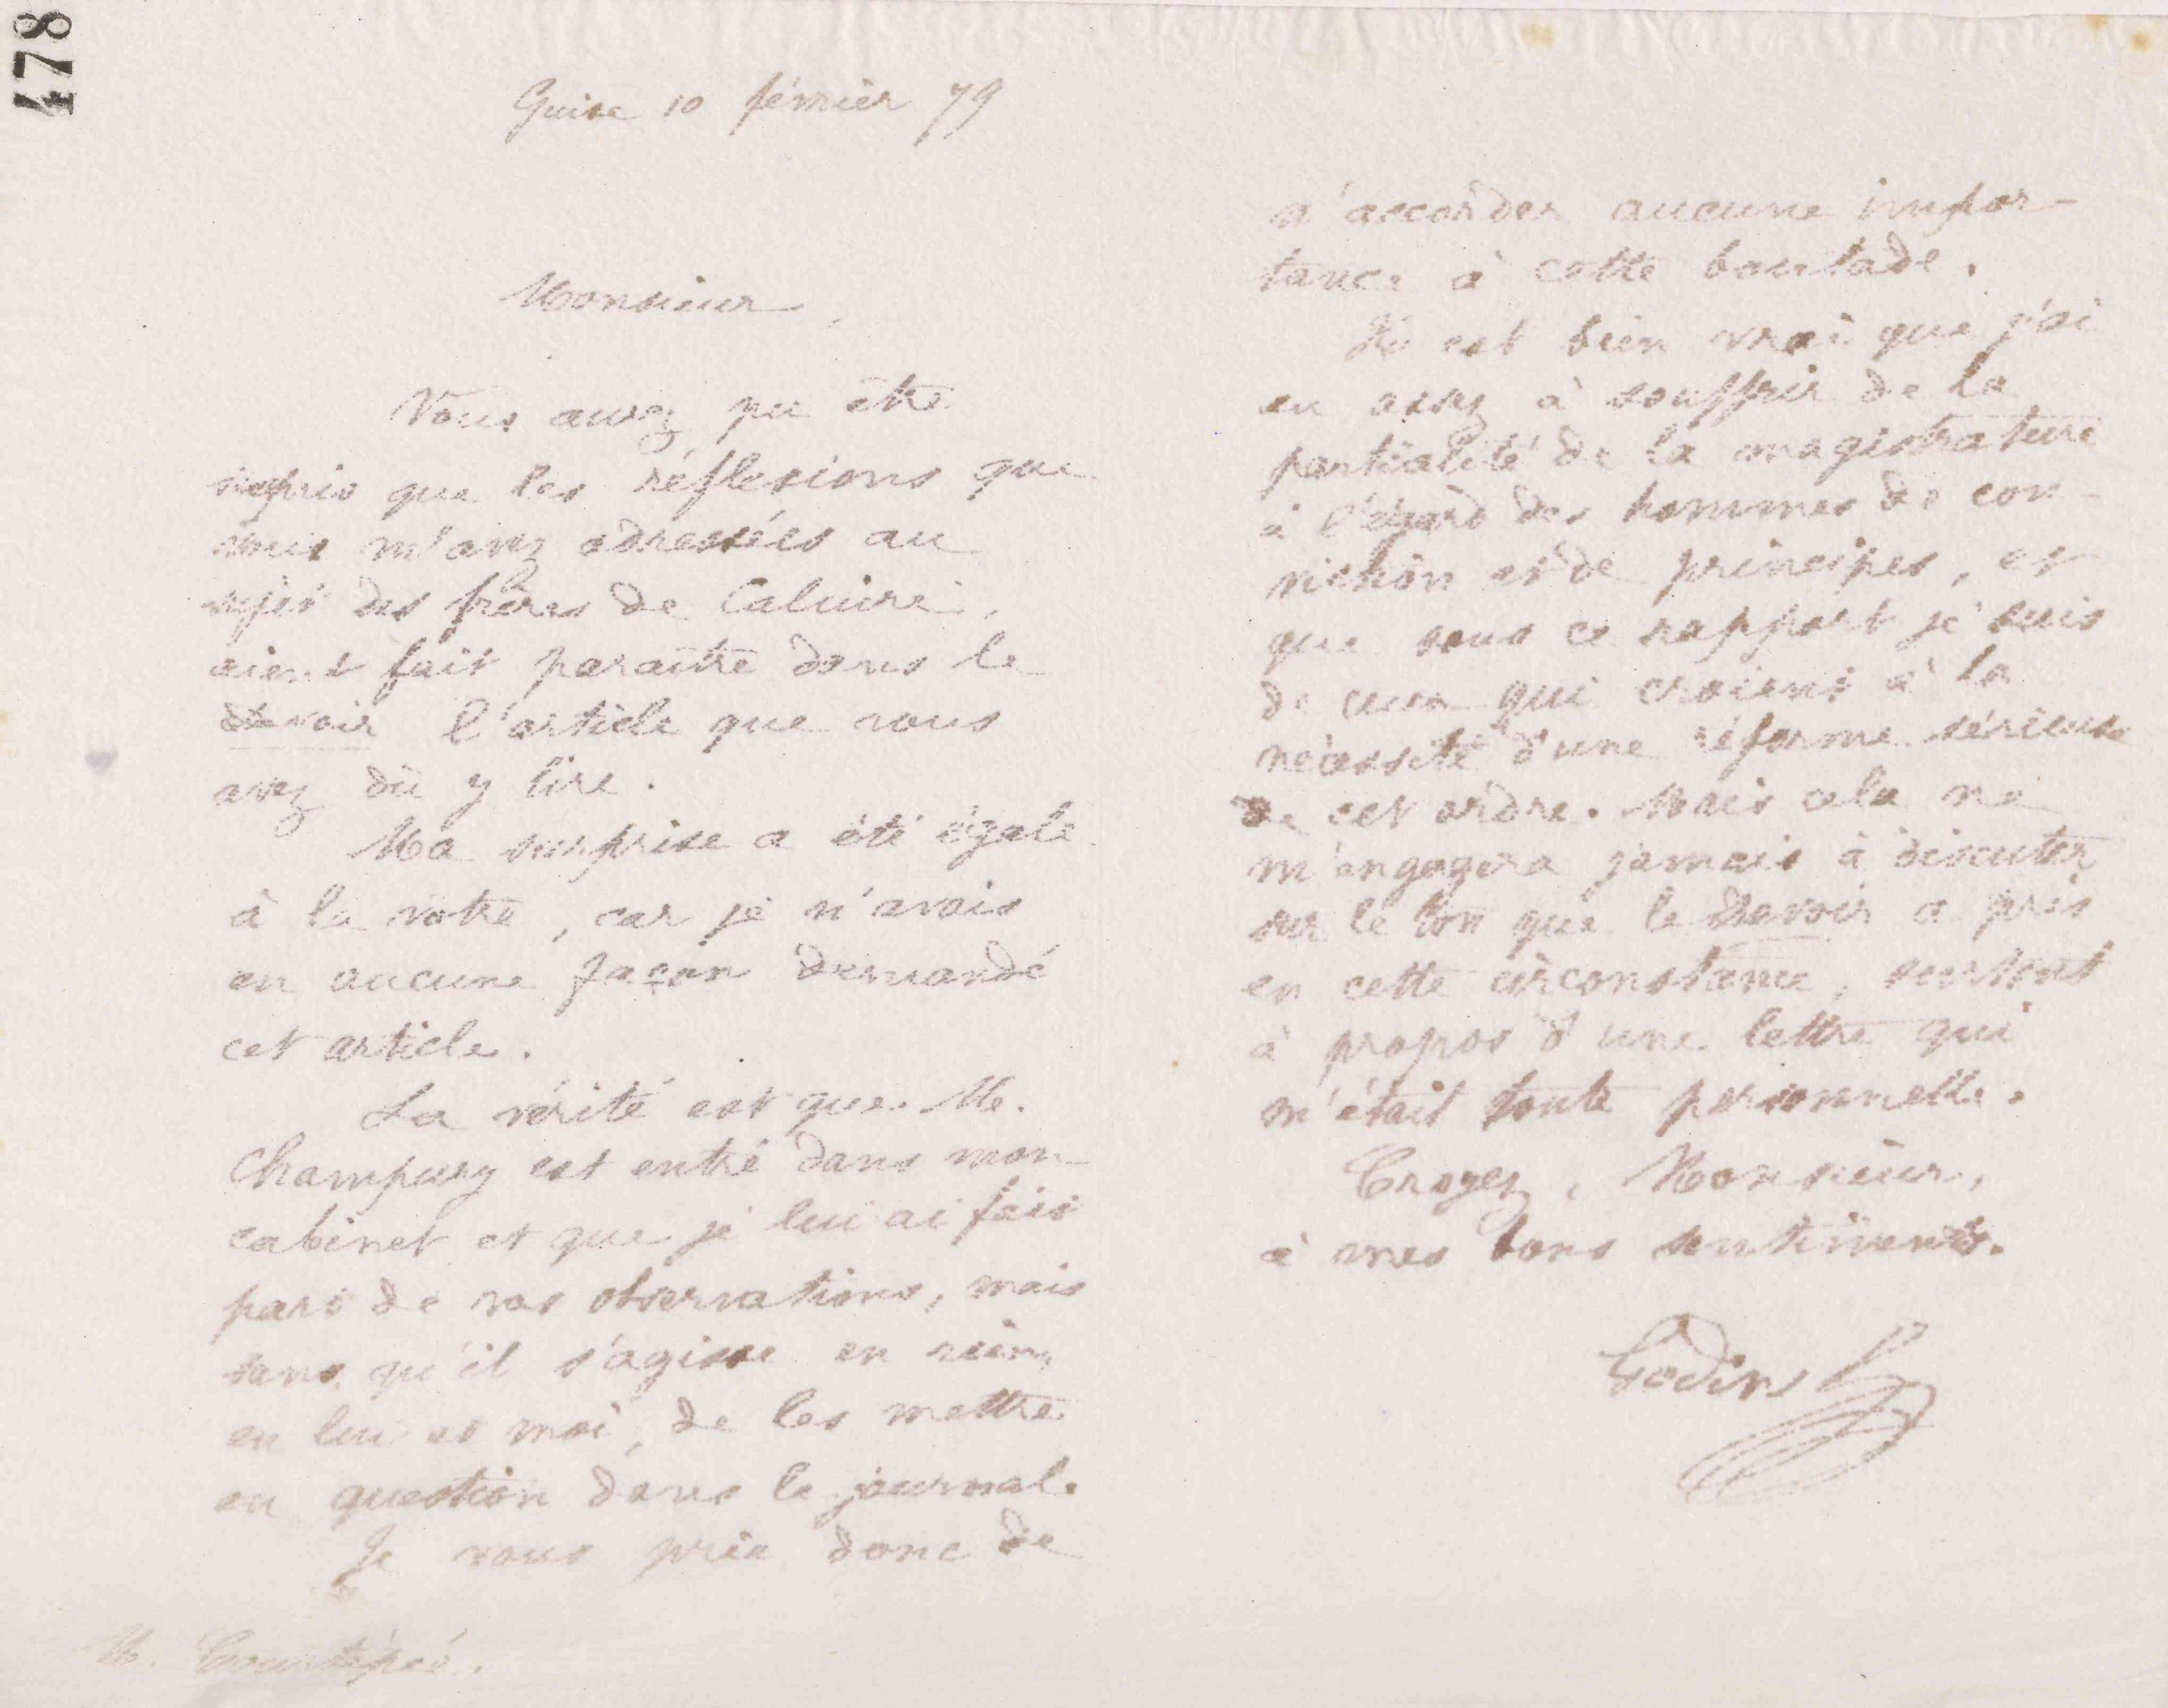 478
Guise 10 février 79
Monsieur,
Vous avez pu être
surpris que les réflexions que
vous m'avez adressées au
sujet des frères de Caluire,
aient fait paraître dans le
devoir l'article que vous
avez dû y lire.
Ma surprise a été égale
à la vôtre, car je n'avais
en aucune façon demandé
cet article.
La vérité est que M.
Champury est entré dans mon
cabinet et que je lui ai fait
part de vos observations, mais
sans qu'il s'agisse en rien,
en lui et moi, de les mettre
en question dans le journal.
Je vous prie donc de
M. Courtépée.
n'accorder aucune impor-
tance à cette boutade.
Il est bien vrai que j'ai
eu assez à souffrir de la
partialité de la magistrature
à l'égard des hommes de con-
viction et de principes, et
que sous ce rapport je suis
de ceux qui croient à la
nécessité d'une réforme sérieuse
de cet ordre. Mais cela ne
m'engagera jamais à discuter
sur le ton que le devoir a pris
en cette circonstance, surtout
à propos d'une lettre qui
m'était toute personnelle.
Croyez, Monsieur,
à mes bons sentiments.
Godin